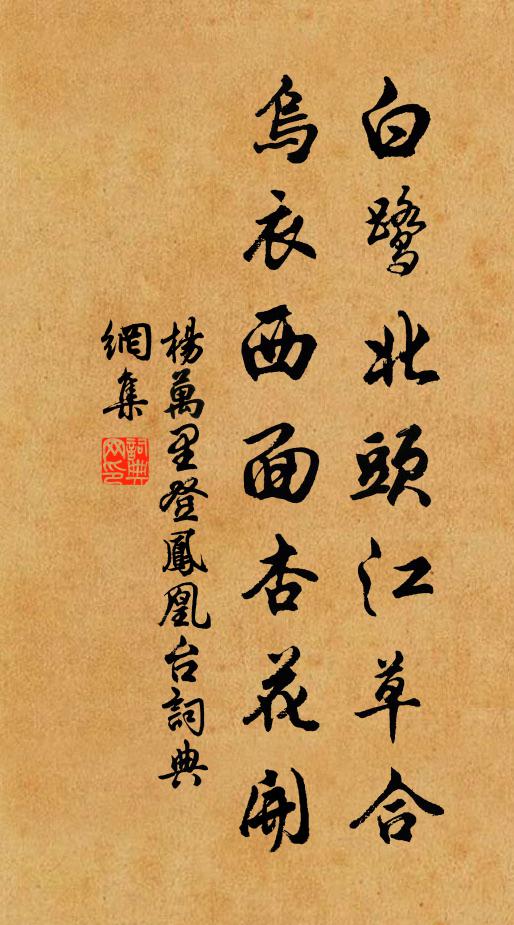 白鷺北頭江草合
烏衣西面杏花開
楊萬里登鳳凰台詞典
網集
詞典網印